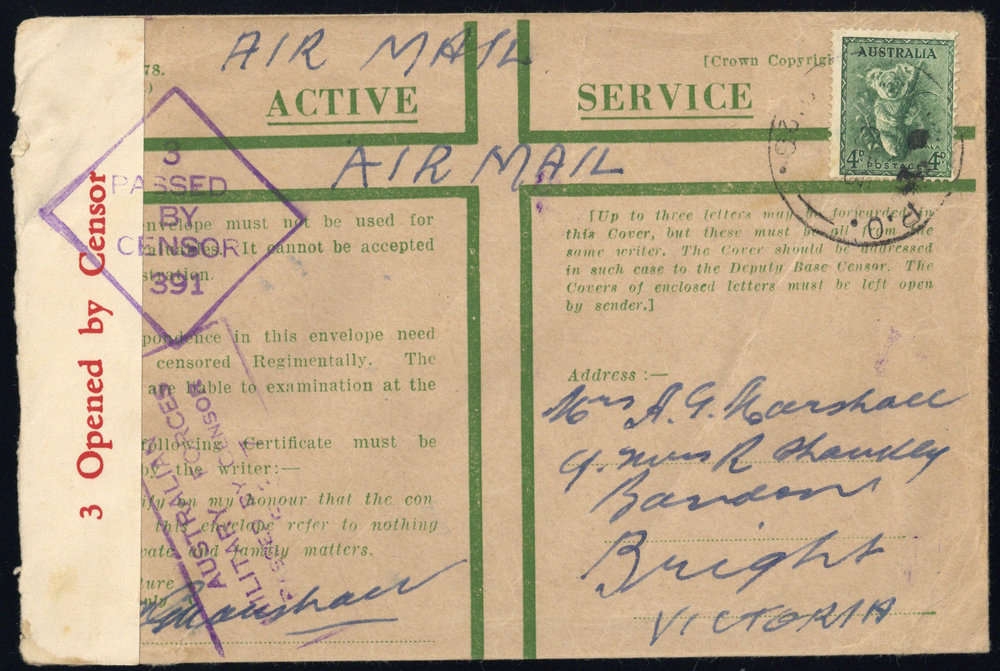 AIR MAIL
78.
[Crown Copyrigh
ACTIVE SERVICE
AIR MAIL
AUSTRALIA
4D POSTAGE 4D
3 Opened by Censor
3
PASSED
BY
CENSOR
391
envelope must not be used for
It cannot be accepted
stration.
pondence in this envelope need
censored Regimentally. The
are liable to examination at the
following Certificate must be
by the writer:—
ify on my honour that the con
this envelope refer to nothing
vate and family matters.
ture
only
Marshall
AUSTRALIAN
MILITARY FORCES
PASSED BY CENSOR
[Up to three letters may be forwarded in
this Cover, but these must be all from the
same writer. The Cover should be addressed
in such case to the Deputy Base Censor. The
Covers of enclosed letters must be left open
by sender.]
Address :—
Mrs A. G. Marshall
Mrs R
Bright
VICTORIA